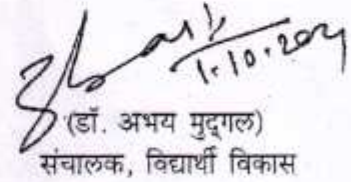 1.10.2024
(डॉ. अभय मुद्गल)
संचालक, विद्यार्थी विकास